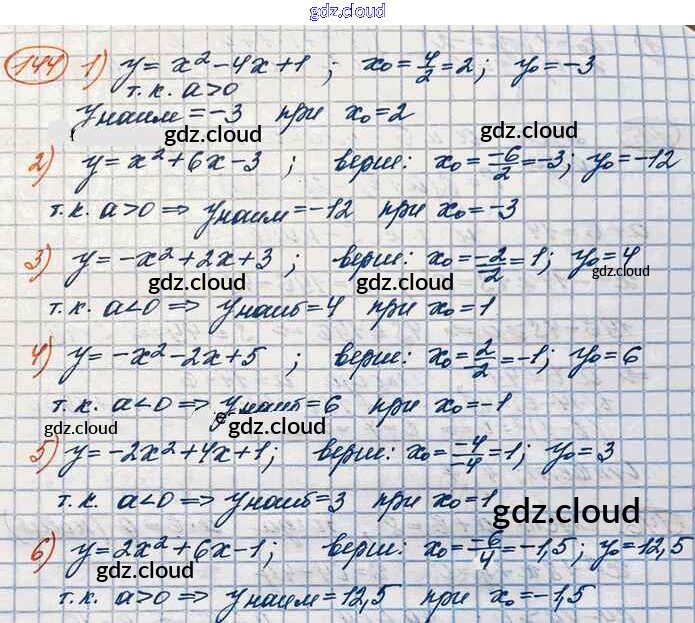 gdz.cloud
gdz.cloud
144 1) y = x² - 4x + 1 ; x₀ = 4/2 = 2; y₀ = -3
т.к. a > 0
yнаим = -3 при x₀ = 2
gdz.cloud gdz.cloud
2) y = x² + 6x - 3 ; верш: x₀ = -6/2 = -3; y₀ = -12
gdz.cloud gdz.cloud
т.к. a > 0 ⇒ yнаим = -12 при x₀ = -3
3) y = -x² + 2x + 3 ; верш: x₀ = -2/-2 = 1; y₀ = 4
gdz.cloud gdz.cloud gdz.cloud
т.к. a < 0 ⇒ yнаиб = 4 при x₀ = 1
4) y = -x² - 2x + 5 ; верш: x₀ = 2/-2 = -1; y₀ = 6
т.к. a < 0 ⇒ yнаиб = 6 при x₀ = -1
gdz.cloud gdz.cloud
5) y = -2x² + 4x + 1; верш: x₀ = -4/-4 = 1; y₀ = 3
т.к. a < 0 ⇒ yнаиб = 3 при x₀ = 1
gdz.cloud
6) y = 2x² + 6x - 1; верш: x₀ = -6/4 = -1,5; y₀ = 12,5
gdz.cloud
т.к. a > 0 ⇒ yнаим = 12,5 при x₀ = -1,5